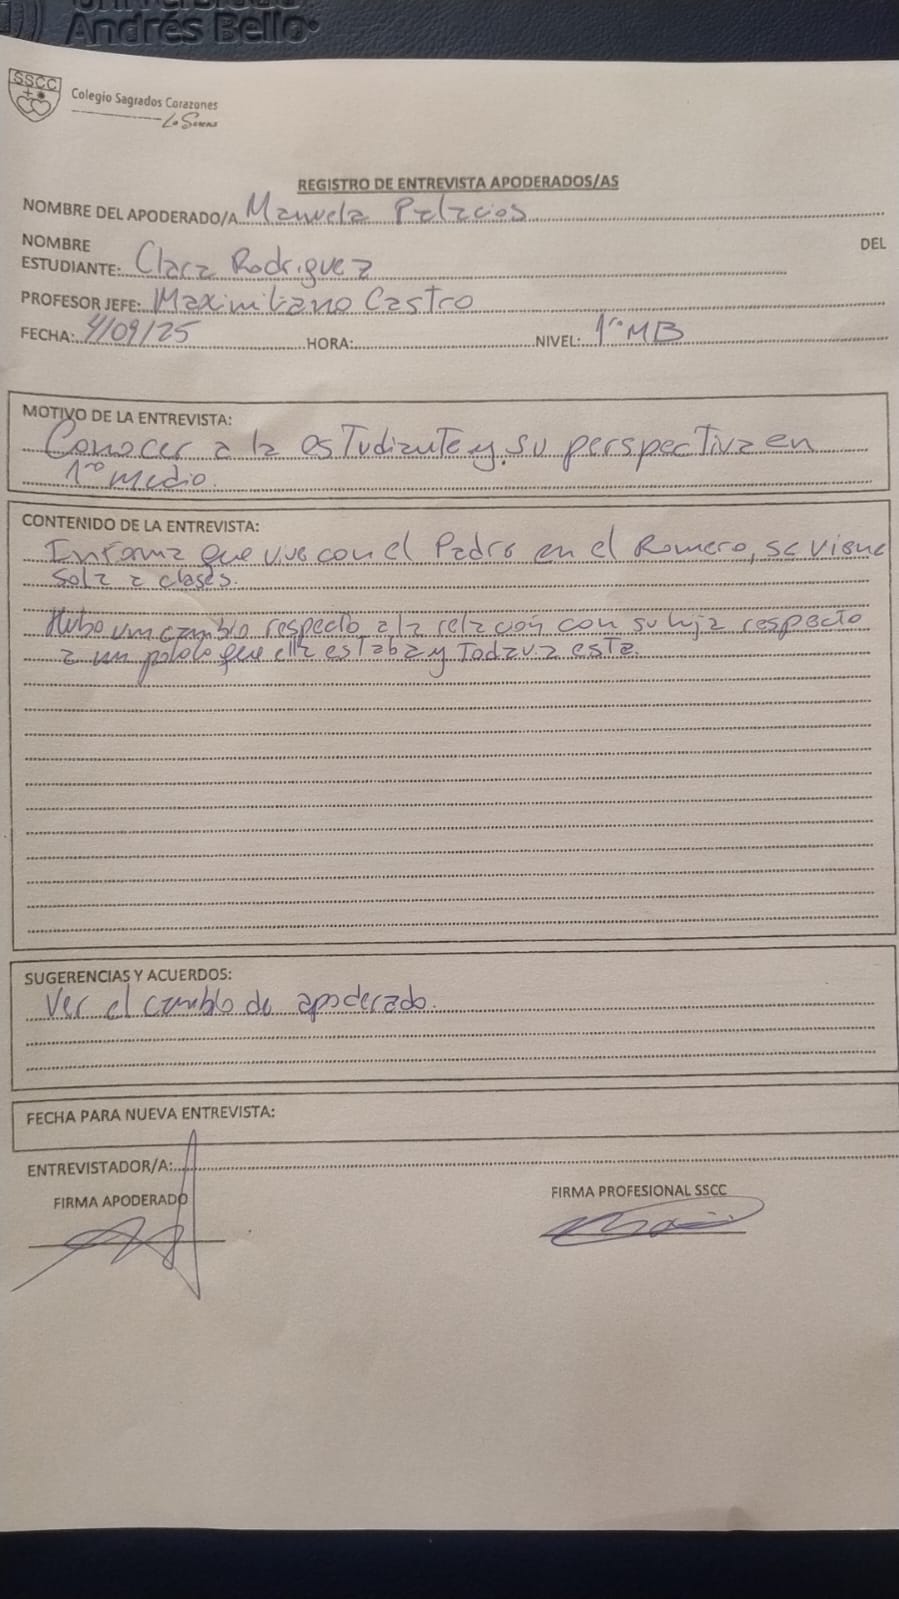 Andrés Bello
SSCC
Colegio Sagrados Corazones
La Serena
REGISTRO DE ENTREVISTA APODERADOS/AS
NOMBRE DEL APODERADO/A Manuela Palacios
NOMBRE DEL
ESTUDIANTE: Clara Rodriguez
PROFESOR JEFE: Maximiliano Castro
FECHA: 4/09/25 HORA: NIVEL: 1ro MB
MOTIVO DE LA ENTREVISTA:
Conocer a la estudiante y su perspectiva en
1ro medio.
CONTENIDO DE LA ENTREVISTA:
Informa que vive con el Padre en el Romero, se viene
sola a clases.
Hubo un cambio respecto a la relación con su hija respecto
a un pololo que ella estaba y todavia esta.
SUGERENCIAS Y ACUERDOS:
Ver el cambio de apoderado.
FECHA PARA NUEVA ENTREVISTA:
ENTREVISTADOR/A:
FIRMA APODERADO FIRMA PROFESIONAL SSCC